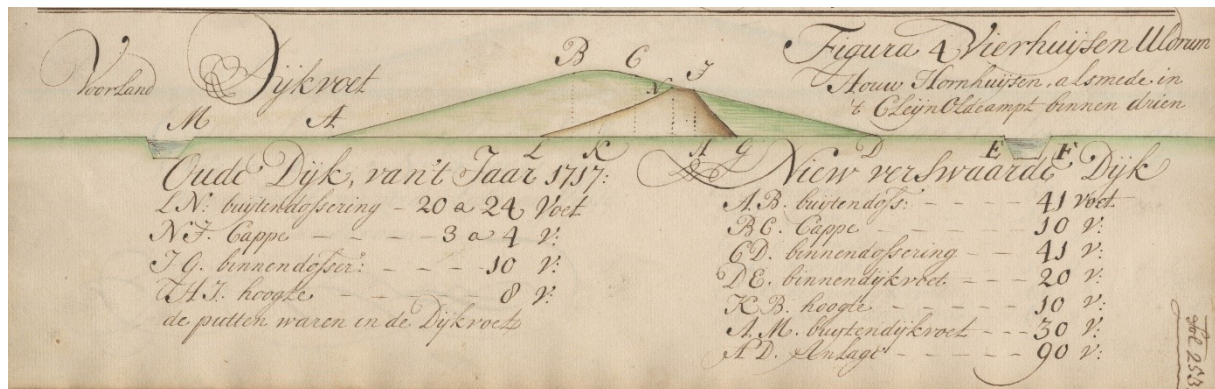 Figura 4 Vierhuijsen Uldrum
Houw Hornhuijsen, alsmede in
't Cleijn Oldeampt binnen drien
Voorland
Dijkvoet
B C I
N
M A
L K H G D E F
Oude Dijk, van't Jaar 1717:
LN: buytendossering - 20 a 24 Voet
NI. Cappe - - - 3 a 4 V:
IG. binnendosser: - - - - 10 V:
HI. hoogte - - - - - 8 V:
de putten waren in de Dijkvoet
Niew verswaarde Dijk
A.B. buytendoss: - - - - 41 voet
BC. Cappe - - - - - 10 V:
CD. binnendossering - - - 41 V:
DE. binnendijkvoet - - - 20 V:
K.B. hoogte - - - - - 10 V:
A.M. buytendijkvoet - - - 30 V:
A D. Anlage - - - - - 90 V:
Fol 253